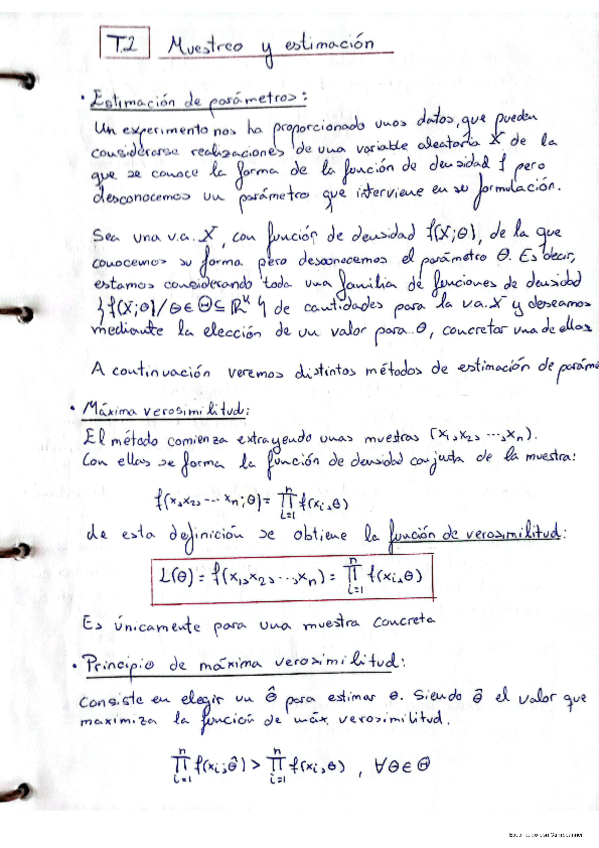 T.2 Muestreo y estimación
· Estimación de parámetros:
Un experimento nos ha proporcionado unos datos, que pueden
considerarse realizaciones de una variable aleatoria X de la
que se conoce la forma de la función de densidad f pero
desconocemos un parámetro que interviene en su formulación.
Sea una v.a. X, con función de densidad f(X;θ), de la que
conocemos su forma pero desconocemos el parámetro θ. Es decir,
estamos considerando toda una familia de funciones de densidad
{f(X;θ)/θ∈Θ⊆ℝᵏ} de cantidades para la v.a. X y deseamos
mediante la elección de un valor para θ, concretar una de ellas
A continuación veremos distintos métodos de estimación de paráme
· Máxima verosimilitud:
El método comienza extrayendo unas muestras (x₁,x₂,...,xₙ).
Con ellas se forma la función de densidad conjunta de la muestra:
f(x₁,x₂,...xₙ;θ)=∏ⁿᵢ₌₁ f(xᵢ,θ)
de esta definición se obtiene la función de verosimilitud:
L(θ) = f(x₁,x₂,...,xₙ) = ∏ⁿᵢ₌₁ f(xᵢ,θ)
Es únicamente para una muestra concreta
· Principio de máxima verosimilitud:
Consiste en elegir un θ̂ para estimar θ. Siendo θ̂ el valor que
maximiza la función de máx. verosimilitud.
∏ⁿᵢ₌₁ f(xᵢ;θ̂) > ∏ⁿᵢ₌₁ f(xᵢ,θ) , ∀θ∈Θ